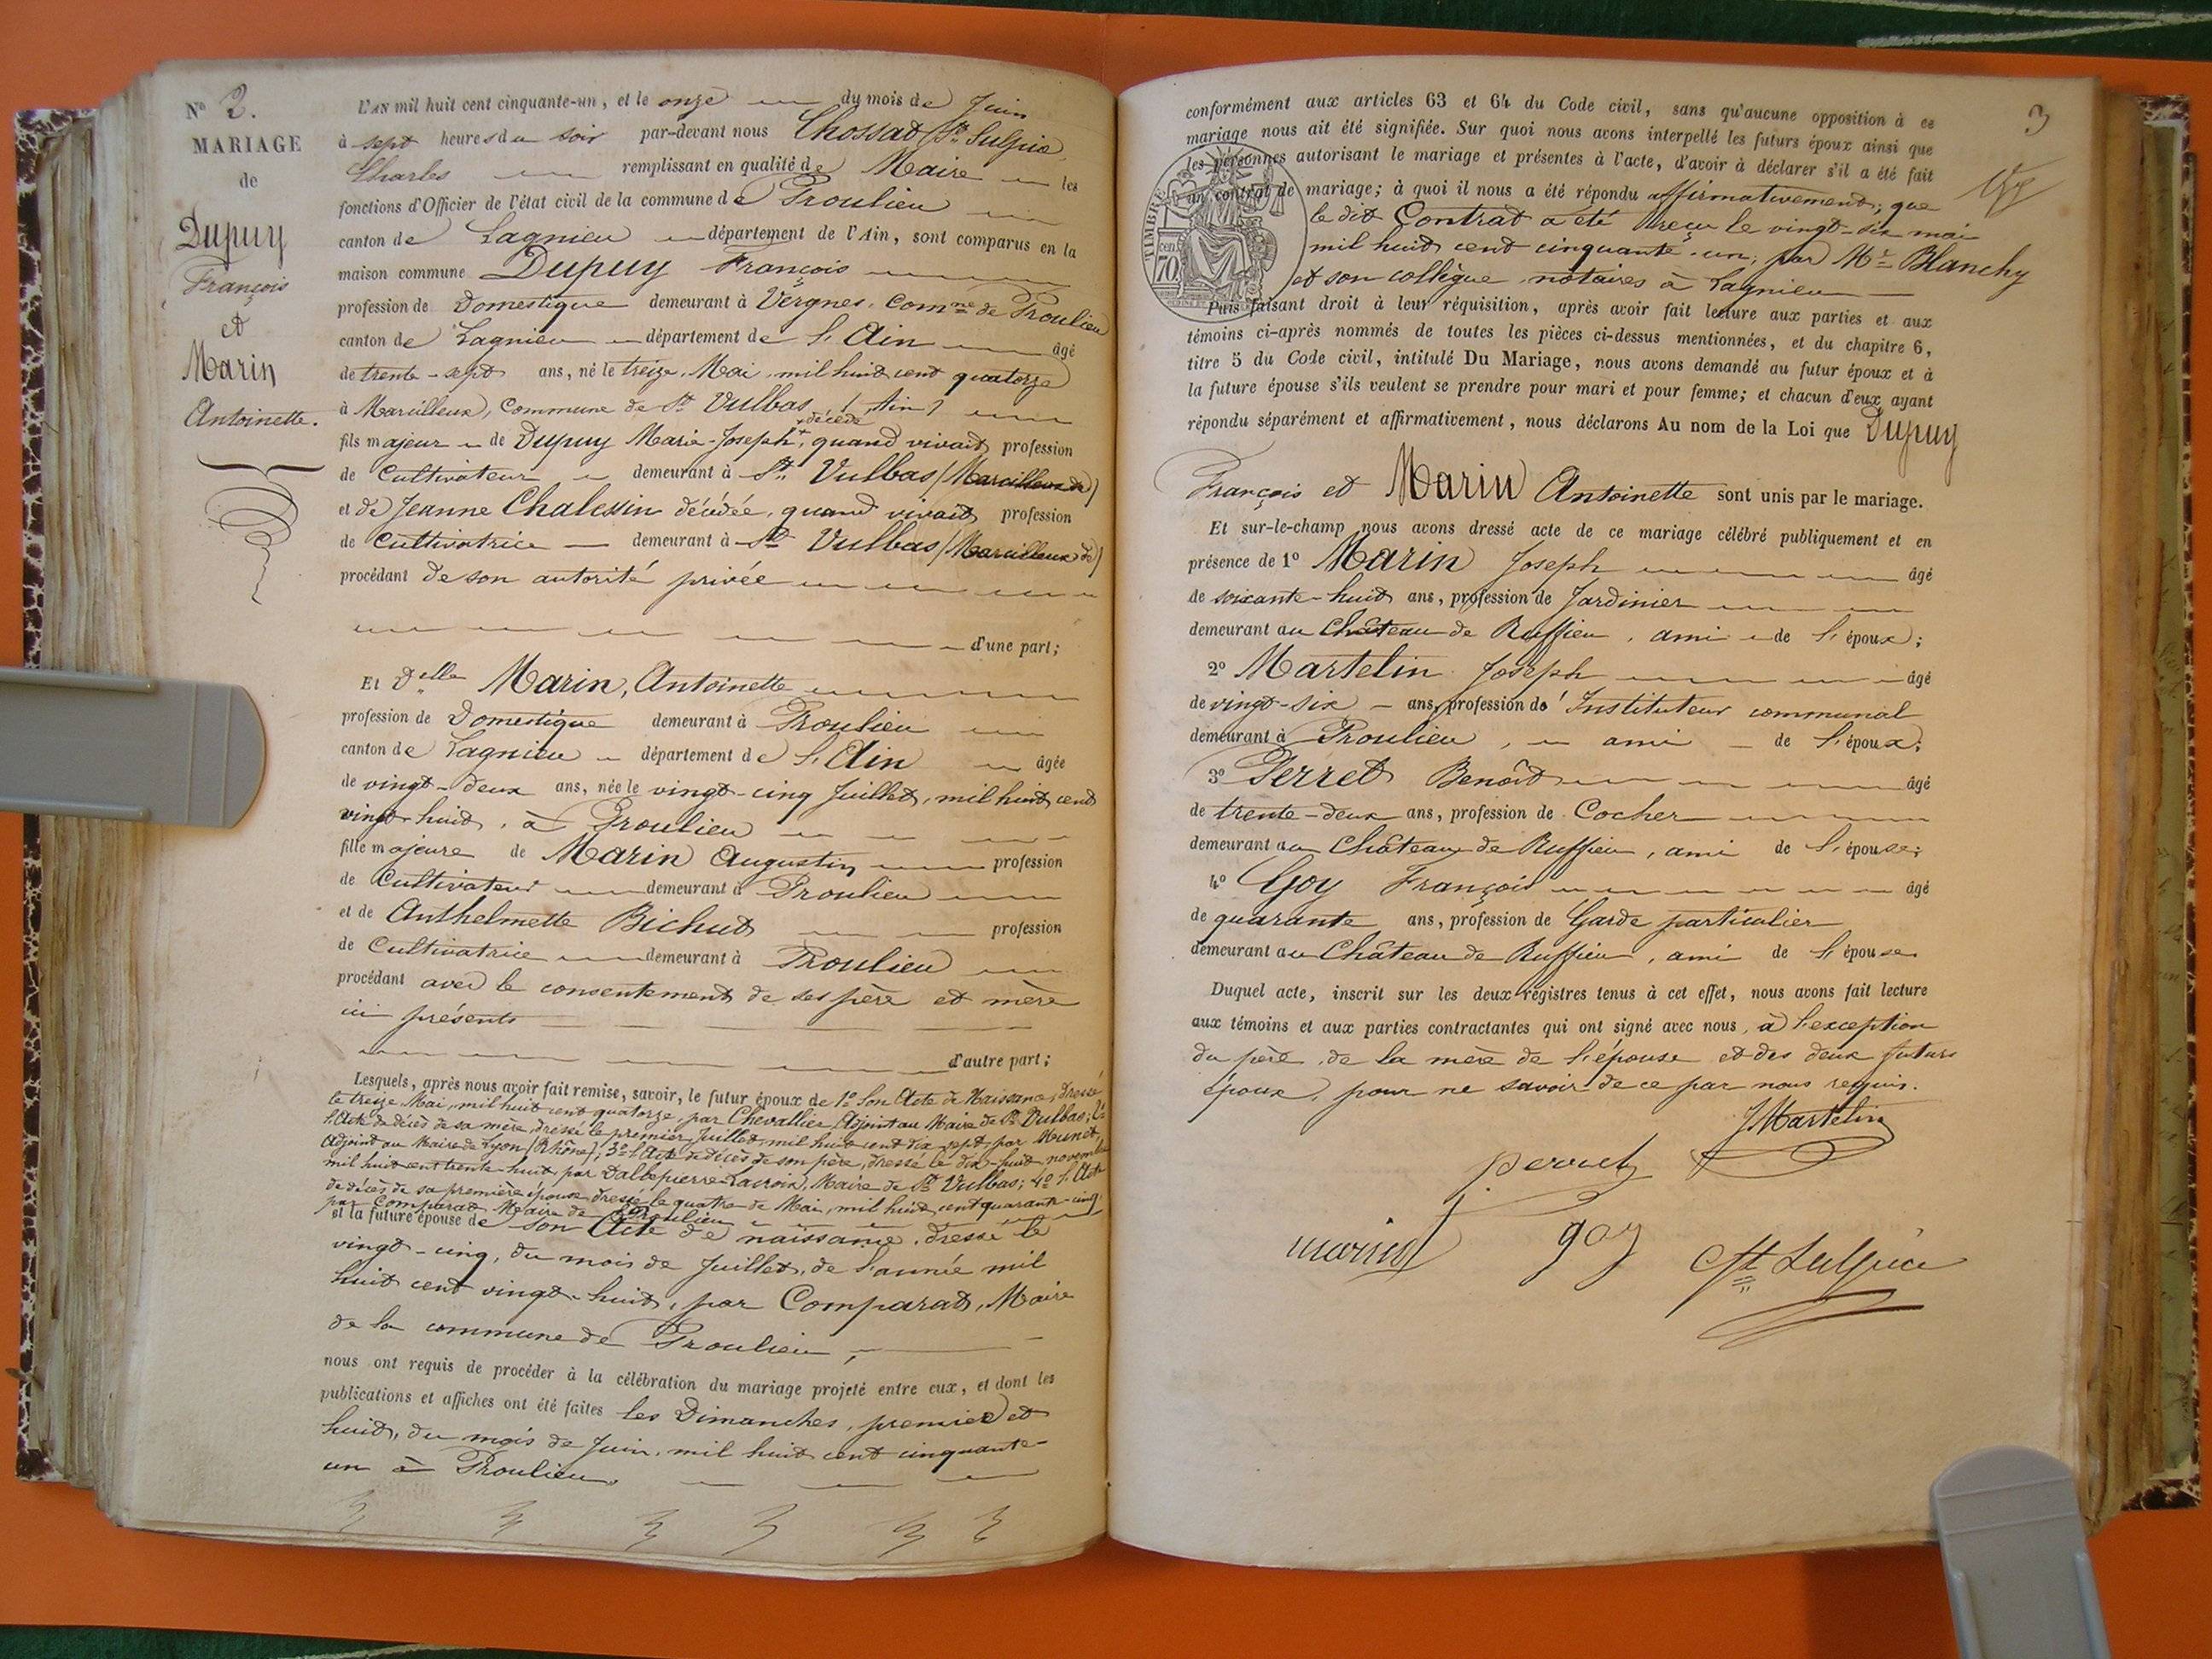 N° 2.
MARIAGE
de
Dupuy
François
et
Marin
Antoinette.
L'AN mil huit cent cinquante-un, et le onze du mois de Juin
à sept heures du soir par-devant nous Chossat (St Sulpice
Charles remplissant en qualité de Maire les
fonctions d'Officier de l'état civil de la commune de Proulieu
canton de Lagnieu département de l'Ain, sont comparus en la
maison commune Dupuy François
profession de Domestique demeurant à Vergnes, Comne de Proulieu
canton de Lagnieu département de l'Ain âgé
de trente-sept ans, né le treize, Mai, mil huit cent quatorze
à Marcilleux, Commune de St Vulbas, (Ain)
+ décédé
fils majeur de Dupuy Marie-Joseph +, quand vivait, profession
de Cultivateur demeurant à St Vulbas (Marcilleux de)
et de Jeanne Chalessin décédée, quand vivait, profession
de Cultivatrice demeurant à St Vulbas (Marcilleux de)
procédant de son autorité privée
d'une part;
Et Delle Marin, Antoinette
profession de Domestique demeurant à Proulieu
canton de Lagnieu département de l'Ain âgée
de vingt-deux ans, née le vingt-cinq Juillet, mil huit cent
vingt-huit, à Proulieu
fille majeure de Marin Augustin profession
de Cultivateur demeurant à Proulieu
et de Anthelmette Bichut profession
de Cultivatrice demeurant à Proulieu
procédant avec le consentement de ses père et mère
ici présents
d'autre part;
Lesquels, après nous avoir fait remise, savoir, le futur époux de 1° Son Acte de Naissance, dressé
le treize Mai, mil huit cent quatorze, par Chevallier, Adjoint au Maire de St Vulbas; 2°
l'Acte de décès de sa mère, dressé le premier Juillet, mil huit cent dix-sept, par Mounet,
Adjoint au Maire de Lyon (Rhône); 3° l'Acte de décès de son père, dressé le dix-huit novembre
mil huit cent trente-huit, par Dallepierre-Lacroix, Maire de St Vulbas; 4° l'Acte
de décès de sa première épouse dressé le quatre de Mai, mil huit cent quarante-cinq,
par Comparat Maire de Proulieu
et la future épouse de son Acte de naissance, dressé le
vingt-cinq, du mois de Juillet, de l'année mil
huit cent vingt-huit, par Comparat, Maire
de la commune de Proulieu,
nous ont requis de procéder à la célébration du mariage projeté entre eux, et dont les
publications et affiches ont été faites les Dimanches, premier et
huit, du mois de Juin, mil huit cent cinquante-
un à Proulieu.
3
conformément aux articles 63 et 64 du Code civil, sans qu'aucune opposition à ce
mariage nous ait été signifiée. Sur quoi nous avons interpellé les futurs époux ainsi que
les personnes autorisant le mariage et présentes à l'acte, d'avoir à déclarer s'il a été fait
un contrat de mariage; à quoi il nous a été répondu affirmativement; que
le dit Contrat a été reçu le vingt-six mai
mil huit cent cinquante-un, par Me Blanchy
et son collègue, notaires à Lagnieu
TIMBRE
70
Puis faisant droit à leur réquisition, après avoir fait lecture aux parties et aux
témoins ci-après nommés de toutes les pièces ci-dessus mentionnées, et du chapitre 6,
titre 5 du Code civil, intitulé Du Mariage, nous avons demandé au futur époux et à
la future épouse s'ils veulent se prendre pour mari et pour femme; et chacun d'eux ayant
répondu séparément et affirmativement, nous déclarons Au nom de la Loi que Dupuy
François et Marin Antoinette sont unis par le mariage.
Et sur-le-champ nous avons dressé acte de ce mariage célébré publiquement et en
présence de 1° Marin Joseph âgé
de soixante-huit ans, profession de Jardinier
demeurant au Château de Ruffieu, ami de l'époux;
2° Martelin Joseph âgé
de vingt-six ans, profession d'Instituteur communal
demeurant à Proulieu, ami de l'époux;
3° Perret Benoît âgé
de trente-deux ans, profession de Cocher
demeurant au Château de Ruffieu, ami de l'épouse;
4° Goy François âgé
de quarante ans, profession de Garde particulier
demeurant au Château de Ruffieu, ami de l'épouse
Duquel acte, inscrit sur les deux régistres tenus à cet effet, nous avons fait lecture
aux témoins et aux parties contractantes qui ont signé avec nous, à l'exception
du père, de la mère de l'épouse et des deux futurs
époux, pour ne savoir de ce par nous requis.
JMartelin
perret
marin
goy
St Sulpice